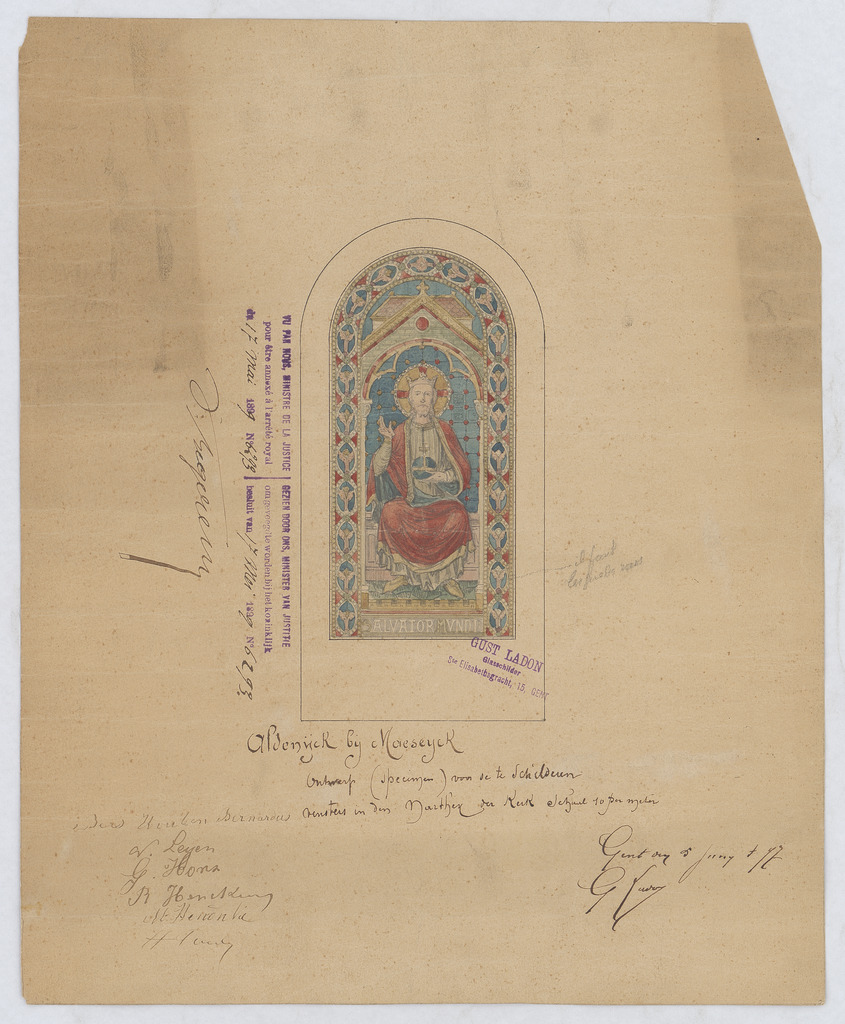 VU PAR NOUS, MINISTRE DE LA JUSTICE
pour être annexé à l'arrêté royal
du 17 Mai 1899 N°
GEZIEN DOOR ONS, MINISTER VAN JUSTITIE
om gevoegd te worden bij het koninklijk
besluit van 17 Mei 1899 N°
SALVATOR MVNDI
GUST LADON
Glasschilder
Ste Elisabethsgracht, 15, GENT
Aldenijck bij Maeseyck
Ontwerp (Specimen) van de te Schilderen
vensters in den Narthex der Kerk Schaal 10 per meter
Bernardus
V. Leyen
G. Hons
Gent den 5 Juny 97
G Ladon